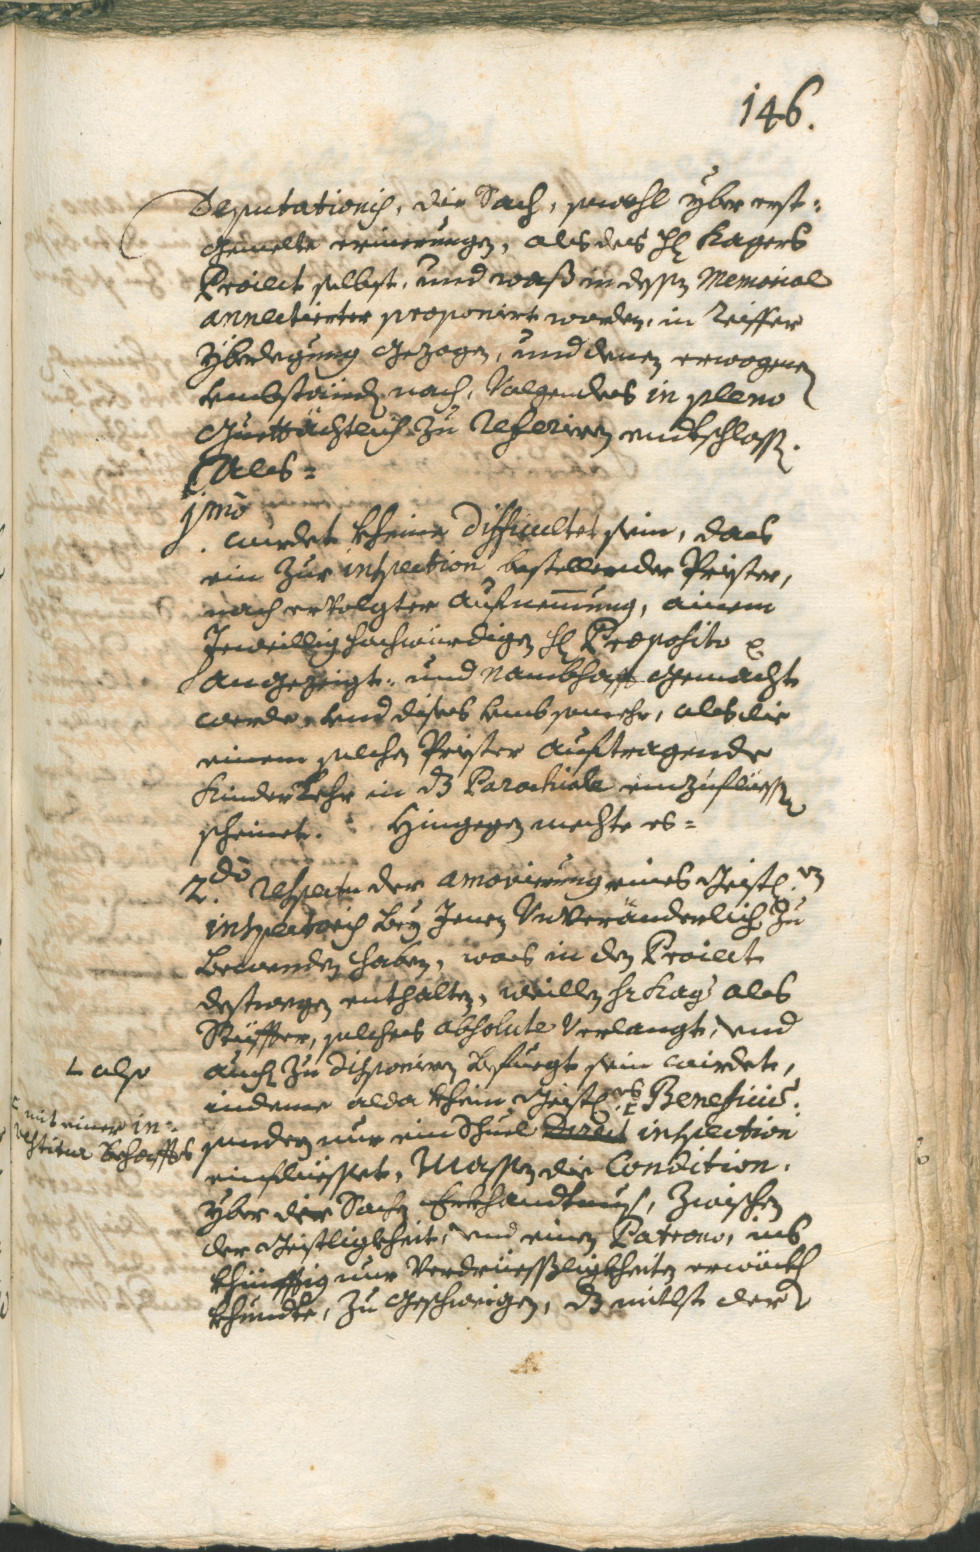 146.
Deputationis, die Sach, sowohl yber erst=
gemelte erinerungen, als des H: Kagers
Proiect selbst, und waß in dessen Memorial
annectierter proponirt worden, in Reiffer
yberlegung gezogen, und denen erwogenen
umbständen nach, Volgendes in pleno
guettächtlich zu Referiren endtschlossen.
Als=
1mo. wirdet kheine Difficultet sein, das
ein zur inspection bestellender Priester,
nach ervolgter aufnemmung, einem
Jeweillig hochwürdigen H: Praeposito
angezeigt, und Nambhafft gemacht
werde, und dises umb somehr, als die
einem solchen Priester auftragende
Kinder Lehr in dz Parochiale einzufliessen
scheinet. Hingegen mechte es=
2do. Respectu der amovierung eines Geistl:en
inspectoris bey Jenen Unveränderlich zu
bewenden haben, was in den Proiect
destwegen enthalten, weillen Hr: Kager als
Stüffter, solches absolute Verlangt, und
auch zu disponiren befuegt sein wirdet,
indeme alda khein Geistl:es Beneficium
sondern nur ein Schuel inspection
einfliesset, Massen die Condition,
yber der Sachen Erkhandtnus, zwischen
der Geistligkheit, und einen Patrono, ins
khünfftig nur Verdriesslichkheiten erwöckhen
khundte, zu geschweigen, dz mitlst der
also
mit einer in=
stitur behaffts